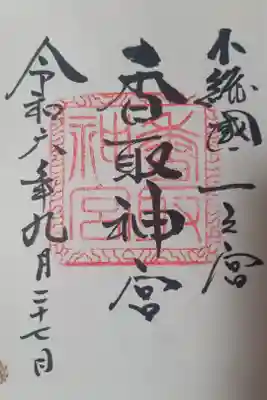 下総國一之宮
香取神宮
令和六年九月二十七日
香取神宮